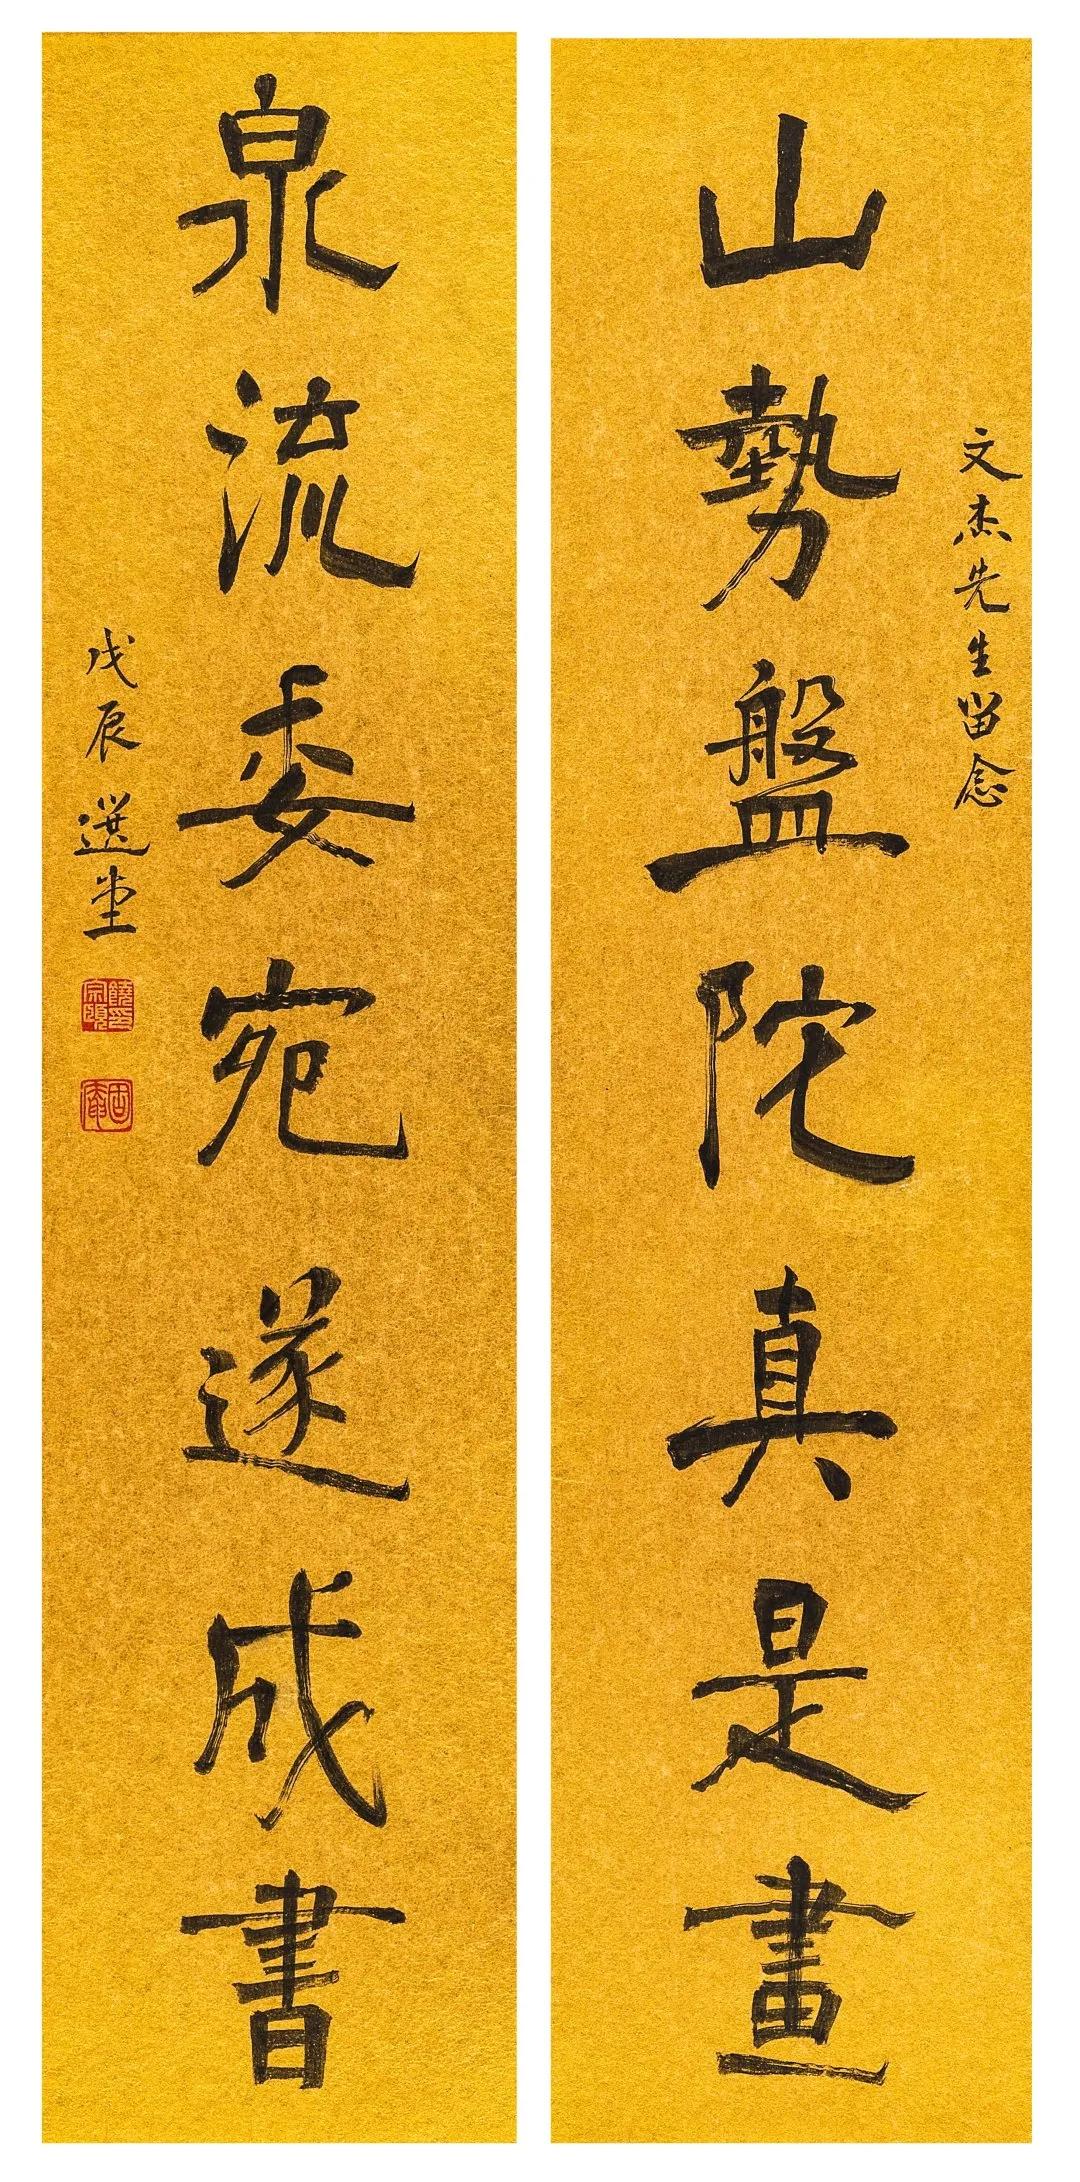 文杰先生留念
山勢盤陀真是畫
泉流委宛遂成書
戊辰選堂
饒宗頤印
固庵